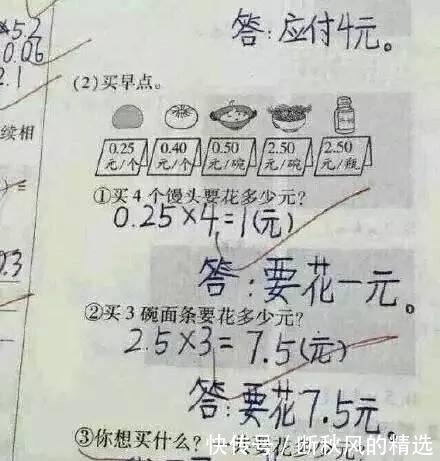 ×5.2
0.06
2.1
答:应付4元。
(2)买早点。
续相
0.25 0.40 0.50 2.50 2.50
元/个 元/个 元/碗 元/碗 元/瓶
①买4个馒头要花多少元?
0.25×4=1(元)
0.3
答:要花一元。
②买3碗面条要花多少元?
2.5×3=7.5(元)
答:要花7.5元。
③你想买什么?一共要花多少元?
快传号/断秋风的精选